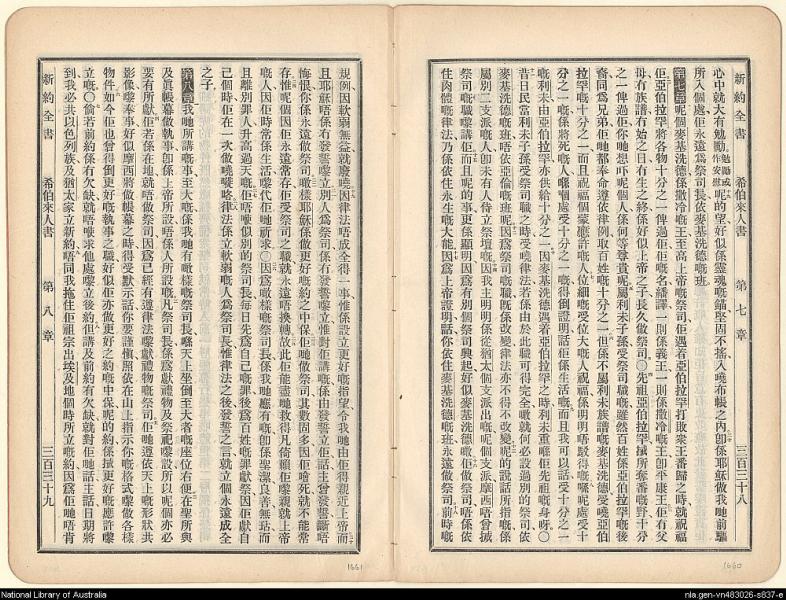 新約全書 希伯來人書 第七章 三百三十八
心中就大有勉勵勉勵或作安慰呢的望好似係靈魂嘅錨堅固不搖入嘵布帳之內卽係耶穌做我哋前驅
所入個處佢永遠爲祭司長依麥基洗德嘅班
第七章呢個麥基洗德係撒冷嘅王至高上帝嘅祭司佢遇着亞伯拉罕打敗衆王番歸之時就祝福
佢亞伯拉罕將各物十分之一俾過佢佢嘅名繙譯一則係義王一則係撒冷嘅王卽平康王佢冇父
母冇族譜冇始之日冇生之終係好似上帝之子長久做祭司○先祖亞伯拉罕搣所奪番嘅野十分
之一俾過佢你哋想吓呢個人係何等尊貴呢屬利未子孫受祭司職嘅雖然百姓係亞伯拉罕嘅後
裔同爲兄弟佢哋都奉命遵依律例取百姓嘅十分之一但係不屬利未族譜嘅麥基洗德受嘵亞伯
拉罕嘅十分之一而且祝福個蒙應許嘅人位細嘅受位大嘅人祝福係明明唔駁得嘅喺呢處受十
分之一嘅係將死嘅人喺個處受十分之一嘅得倒證明話佢係生活嘅而且我可以話受十分之一
嘅利未由亞伯拉罕亦供給十分之一因麥基洗德遇着亞伯拉罕之時利未重喺佢先祖嘅身呀○
昔日民當利未子孫受祭司職之時受嘵律法若係由於此職可得完全嘅就何必設過別的祭司依
麥基洗德嘅班唔依亞倫嘅班呢因爲祭司嘅職旣係改變律法亦不得不改變呢的說話所指嘅係
屬別一支派嘅人卽未有人侍立祭壇嘅因我主明明係從猶太個支派出嘅呢個支派摩西唔曾搣
祭司嘅職嚟講佢而且呢的事更係顯明因爲有別個祭司興起好似麥基洗德噉佢做祭司唔係依
住肉體嘅律法乃係依住永生嘅大能因爲上帝證明話你依住麥基洗德嘅班永遠做祭司前時嘅
1660
新約全書 希伯來人書 第八章 三百三十九
規例因軟弱無益就廢嘵因律法唔成全得一事惟係設立更好嘅指望令我哋由佢得親近上帝而
且耶穌唔係冇發誓嚟立別人爲祭司係冇發誓嚟立惟對佢講嘅係由發誓立佢話主曾發誓斷唔
悔恨你係永遠做祭司噉樣耶穌係做更好嘅約之中保佢哋做祭司其數固多因佢哋死就不能常
存惟呢個因佢永遠常存佢受祭司之職就永遠唔換轉故此佢能盡哋救得凡倚賴佢嚟親就上帝
嘅人因佢時常係生活嚟代佢哋祈求○因爲噉樣嘅祭司長係我哋應有嘅卽係聖潔良善無玷而
且離別罪人升高過天嘅佢唔使似別的祭司長每日先爲自己嘅罪後爲百姓嘅罪獻祭因佢獻自
己個時佢在一次做嘵嘥咯律法係立軟弱嘅人爲祭司長惟律法之後發誓之言就立個永遠成全
之子
第八章我哋所講嘅事至大嘅係我哋有噉樣嘅祭司長喺天上坐倒至大者嘅座位右便在聖所與
及眞帳幕做執事卽係上帝所設唔係人所設嘅凡祭司長係爲獻禮物及祭祀嚟設所以呢個亦必
要有所獻佢若係在地就唔做祭司因爲已經有遵律法嚟獻禮物嘅祭司佢哋遵依天上嘅形狀共
影像嚟奉事好似摩西將做帳幕之時得受默示話你要謹慎照依在山上指示你嘅格式嚟做各樣
物件如今佢也曾得倒更好嘅執事之職好似佢亦做更好之約嘅中保呢的約係搣更好嘅應許嚟
立嘅○倘若前約係冇欠缺就唔使求他處嚟立後約但講及前約有欠缺就對佢哋話主話日期將
到我必共以色列族及猶太家立新約唔同我拖住佢祖宗出埃及地個時所立嘅約因爲佢哋唔肯
1661
National Library of Australia
nla.gen-vn483026-s837-e